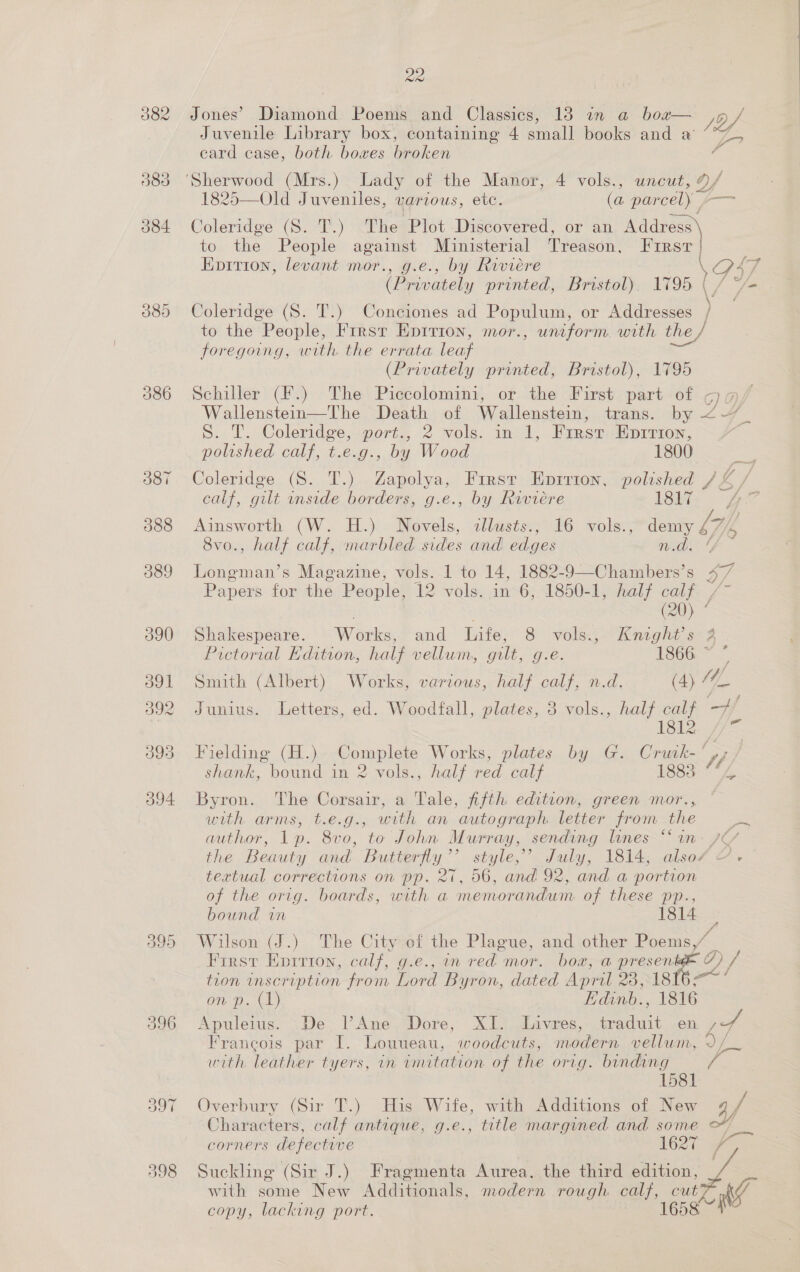 22
382 Jones’ Diamond Poems and Classics, 13 in a box—
Juvenile Library box, containing 4 small books and a
card case, both boxes broken
383 Sherwood (Mrs.) Lady of the Manor, 4 vols., uncut,
1825—Old Juveniles, various, etc. (a parcel)
384 Coleridge (S. T.) The Plot Discovered, or an Address
to the People against Ministerial Treason, First
Edition, levant mor., g.e., by Riviere
(Privately printed, Bristol) 1795
385 Coleridge (S. T.) Conciones ad Populum, or Addresses
to the People, First Edition, mor., uniform with the
foregoing, with the errata leaf
(Privately printed, Bristol), 1795
386 Schiller (F.) The Piccolomini, or the First part of
Wallenstein—The Death of Wallenstein, trans. by
S. T. Coleridge, port., 2 vols. in 1, First Edition,
polished calf, t.e.g., by Wood 1800
387 Coleridge (S. T.) Zapolya, First Edition, polished
calf, gilt inside borders, g.e., by Riviere 1817
388 Ainsworth (W. H.) Novels, illusts., 16 vols., demy
8vo., half calf, marbled sides and edges n.d.
389 Longman’s Magazine, vols. 1 to 14, 1882-9—Chambers’s
Papers for the People, 12 vols. in 6, 1850-1, half calf
(20)
390 Shakespeare. Works, and Life, 8 vols., Knight’s
Pictorial Edition, half vellum, gilt, g.e. 1866
391 Smith (Albert) Works, various, half calf, n.d. (4)
392 Junius. Letters, ed. Woodfall, plates, 3 vols., half calf
1812
393 Fielding (H.) Complete Works, plates by G. Cruik-
shank, bound in 2 vols., half red calf 1883
394 Byron. The Corsair, a Tale, fifth edition, green mor.,
with arms, t.e.g., with an autograph letter from the
author, 1 p. 8vo, to John Murray, sending lines “in
the Beauty and Butterfly” style,” July, 1814, also
textual corrections on pp. 27, 56, and 92, and a portion
of the orig. boards, with a memorandum of these pp.,
bound in 1814
395 Wilson (J.) The City of the Plague, and other Poems,
First Edition, calf, g.e., in red mor. box, a presenta-
tion inscription from Lord Byron, dated April 23, 1816
on p. (1) Edinb., 1816
396 Apuleius. De l’Ane Dore, XI. Livres, traduit en
François par I. Louueau, woodcuts, modern vellum,
with leather tyers, in imitation of the orig. binding
1581
397 Overbury (Sir T.) His Wife, with Additions of New
Characters, calf antique, g.e., title margined and some
corners defective 1627
398 Suckling (Sir J.) Fragmenta Aurea, the third edition,
with some New Additionals, modern rough calf, cut
copy, lacking port. 1658